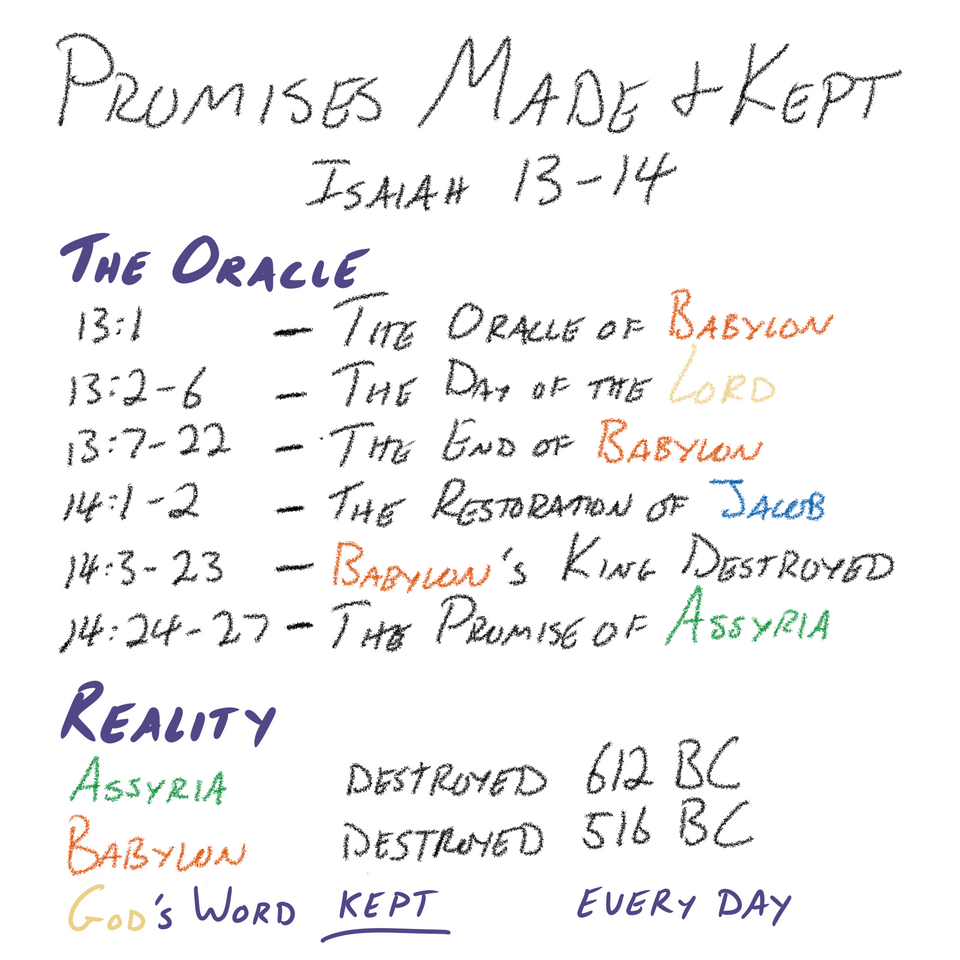 PROMISES MADE & KEPT
ISAIAH 13-14
THE ORACLE
13:1 - THE ORACLE OF BABYLON
13:2-6 - THE DAY OF THE LORD
13:7-22 - THE END OF BABYLON
14:1-2 - THE RESTORATION OF JACOB
14:3-23 - BABYLON'S KING DESTROYED
14:24-27 - THE PROMISE OF ASSYRIA
REALITY
ASSYRIA DESTROYED 612 BC
BABYLON DESTROYED 516 BC
GOD'S WORD KEPT EVERY DAY